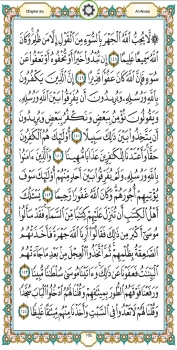 Chapter (4) An-Nisaa
۞ لَّا يُحِبُّ ٱللَّهُ ٱلْجَهْرَ بِٱلسُّوٓءِ مِنَ ٱلْقَوْلِ إِلَّا مَن ظُلِمَ ۚ وَكَانَ
ٱللَّهُ سَمِيعًا عَلِيمًا ١٤٨ إِن تُبْدُوا۟ خَيْرًا أَوْ تُخْفُوهُ أَوْ تَعْفُوا۟ عَن
سُوٓءٍ فَإِنَّ ٱللَّهَ كَانَ عَفُوًّا قَدِيرًا ١٤٩ إِنَّ ٱلَّذِينَ يَكْفُرُونَ
بِٱللَّهِ وَرُسُلِهِۦ وَيُرِيدُونَ أَن يُفَرِّقُوا۟ بَيْنَ ٱللَّهِ وَرُسُلِهِۦ
وَيَقُولُونَ نُؤْمِنُ بِبَعْضٍ وَنَكْفُرُ بِبَعْضٍ وَيُرِيدُونَ
أَن يَتَّخِذُوا۟ بَيْنَ ذَٰلِكَ سَبِيلًا ١٥٠ أُو۟لَٰٓئِكَ هُمُ ٱلْكَٰفِرُونَ
حَقًّا ۚ وَأَعْتَدْنَا لِلْكَٰفِرِينَ عَذَابًا مُّهِينًا ١٥١ وَٱلَّذِينَ ءَامَنُوا۟
بِٱللَّهِ وَرُسُلِهِۦ وَلَمْ يُفَرِّقُوا۟ بَيْنَ أَحَدٍ مِّنْهُمْ أُو۟لَٰٓئِكَ سَوْفَ
يُؤْتِيهِمْ أُجُورَهُمْ ۗ وَكَانَ ٱللَّهُ غَفُورًا رَّحِيمًا ١٥٢ يَسْـَٔلُكَ
أَهْلُ ٱلْكِتَٰبِ أَن تُنَزِّلَ عَلَيْهِمْ كِتَٰبًا مِّنَ ٱلسَّمَآءِ ۚ فَقَدْ سَأَلُوا۟
مُوسَىٰٓ أَكْبَرَ مِن ذَٰلِكَ فَقَالُوٓا۟ أَرِنَا ٱللَّهَ جَهْرَةً فَأَخَذَتْهُمُ
ٱلصَّٰعِقَةُ بِظُلْمِهِمْ ۚ ثُمَّ ٱتَّخَذُوا۟ ٱلْعِجْلَ مِنۢ بَعْدِ مَا جَآءَتْهُمُ
ٱلْبَيِّنَٰتُ فَعَفَوْنَا عَن ذَٰلِكَ ۚ وَءَاتَيْنَا مُوسَىٰ سُلْطَٰنًا مُّبِينًا ١٥٣
وَرَفَعْنَا فَوْقَهُمُ ٱلطُّورَ بِمِيثَٰقِهِمْ وَقُلْنَا لَهُمُ ٱدْخُلُوا۟ ٱلْبَابَ سُجَّدًا
وَقُلْنَا لَهُمْ لَا تَعْدُوا۟ فِى ٱلسَّبْتِ وَأَخَذْنَا مِنْهُم مِّيثَٰقًا غَلِيظًا ١٥٤